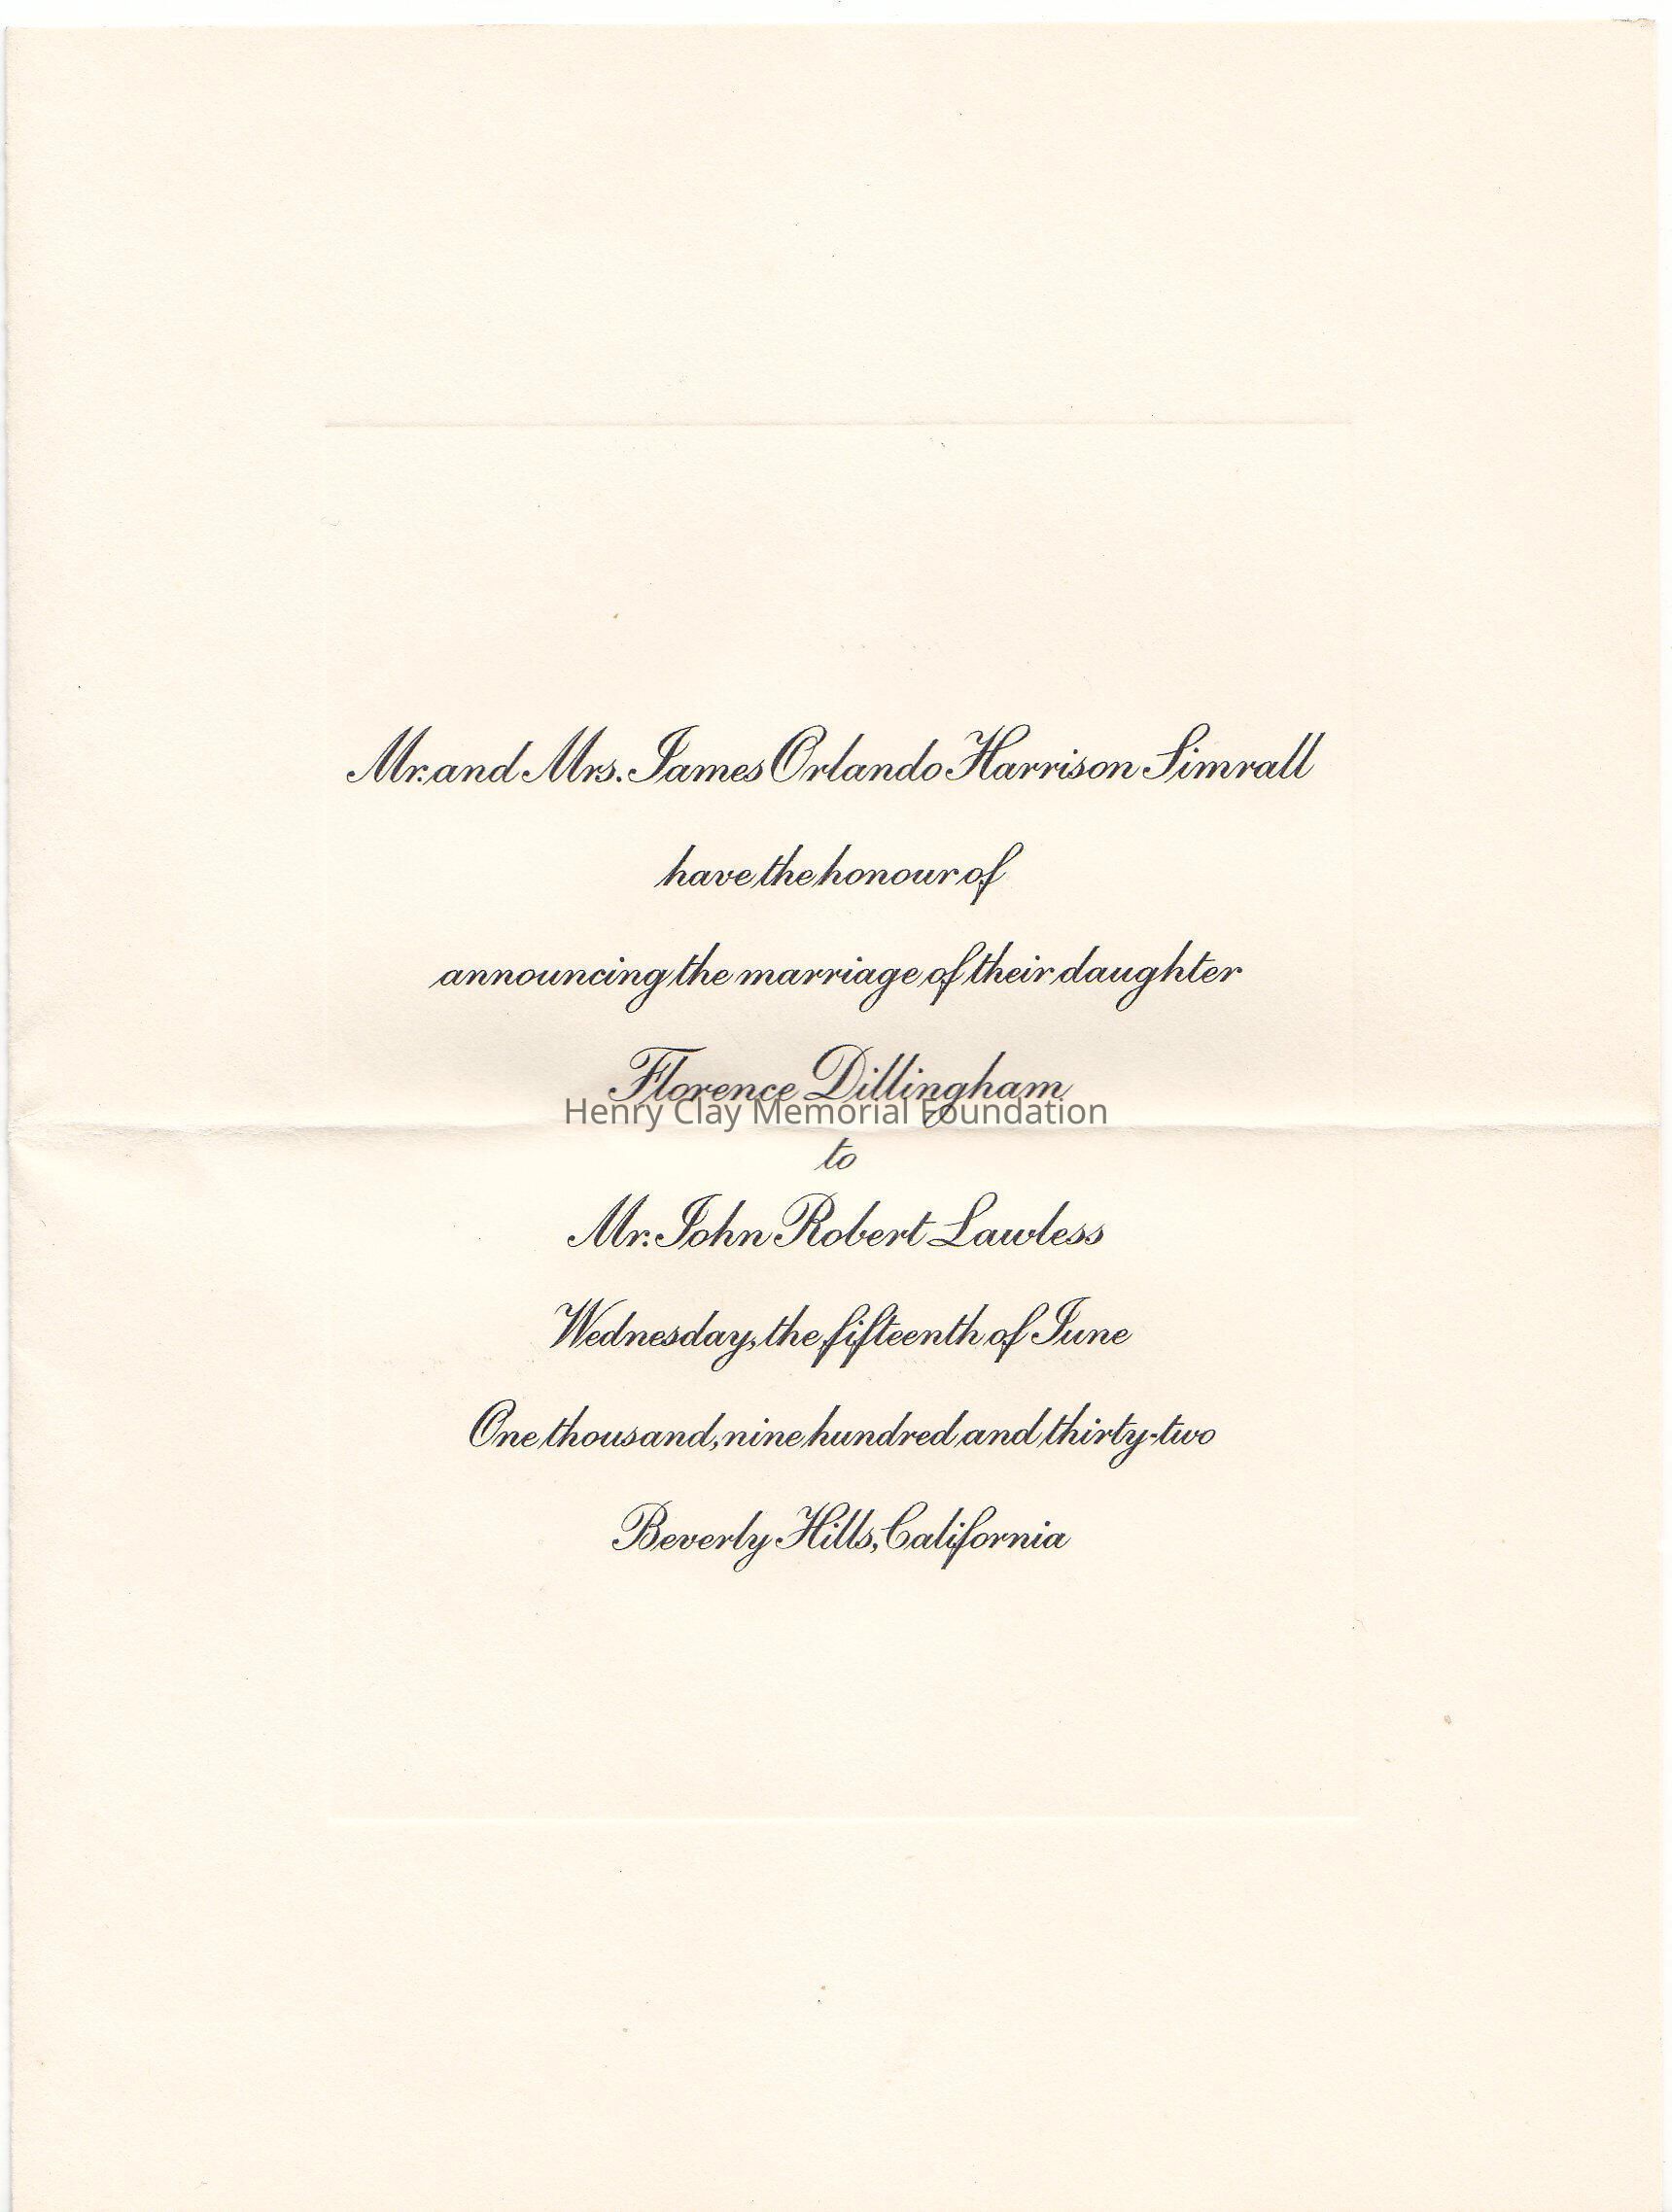 Mr. and Mrs. James Orlando Harrison Simrall
have the honour of
announcing the marriage of their daughter
Florence Dillingham
Henry Clay Memorial Foundation
to
Mr. John Robert Lawless
Wednesday, the fifteenth of June
One thousand, nine hundred and thirty-two
Beverly Hills, California